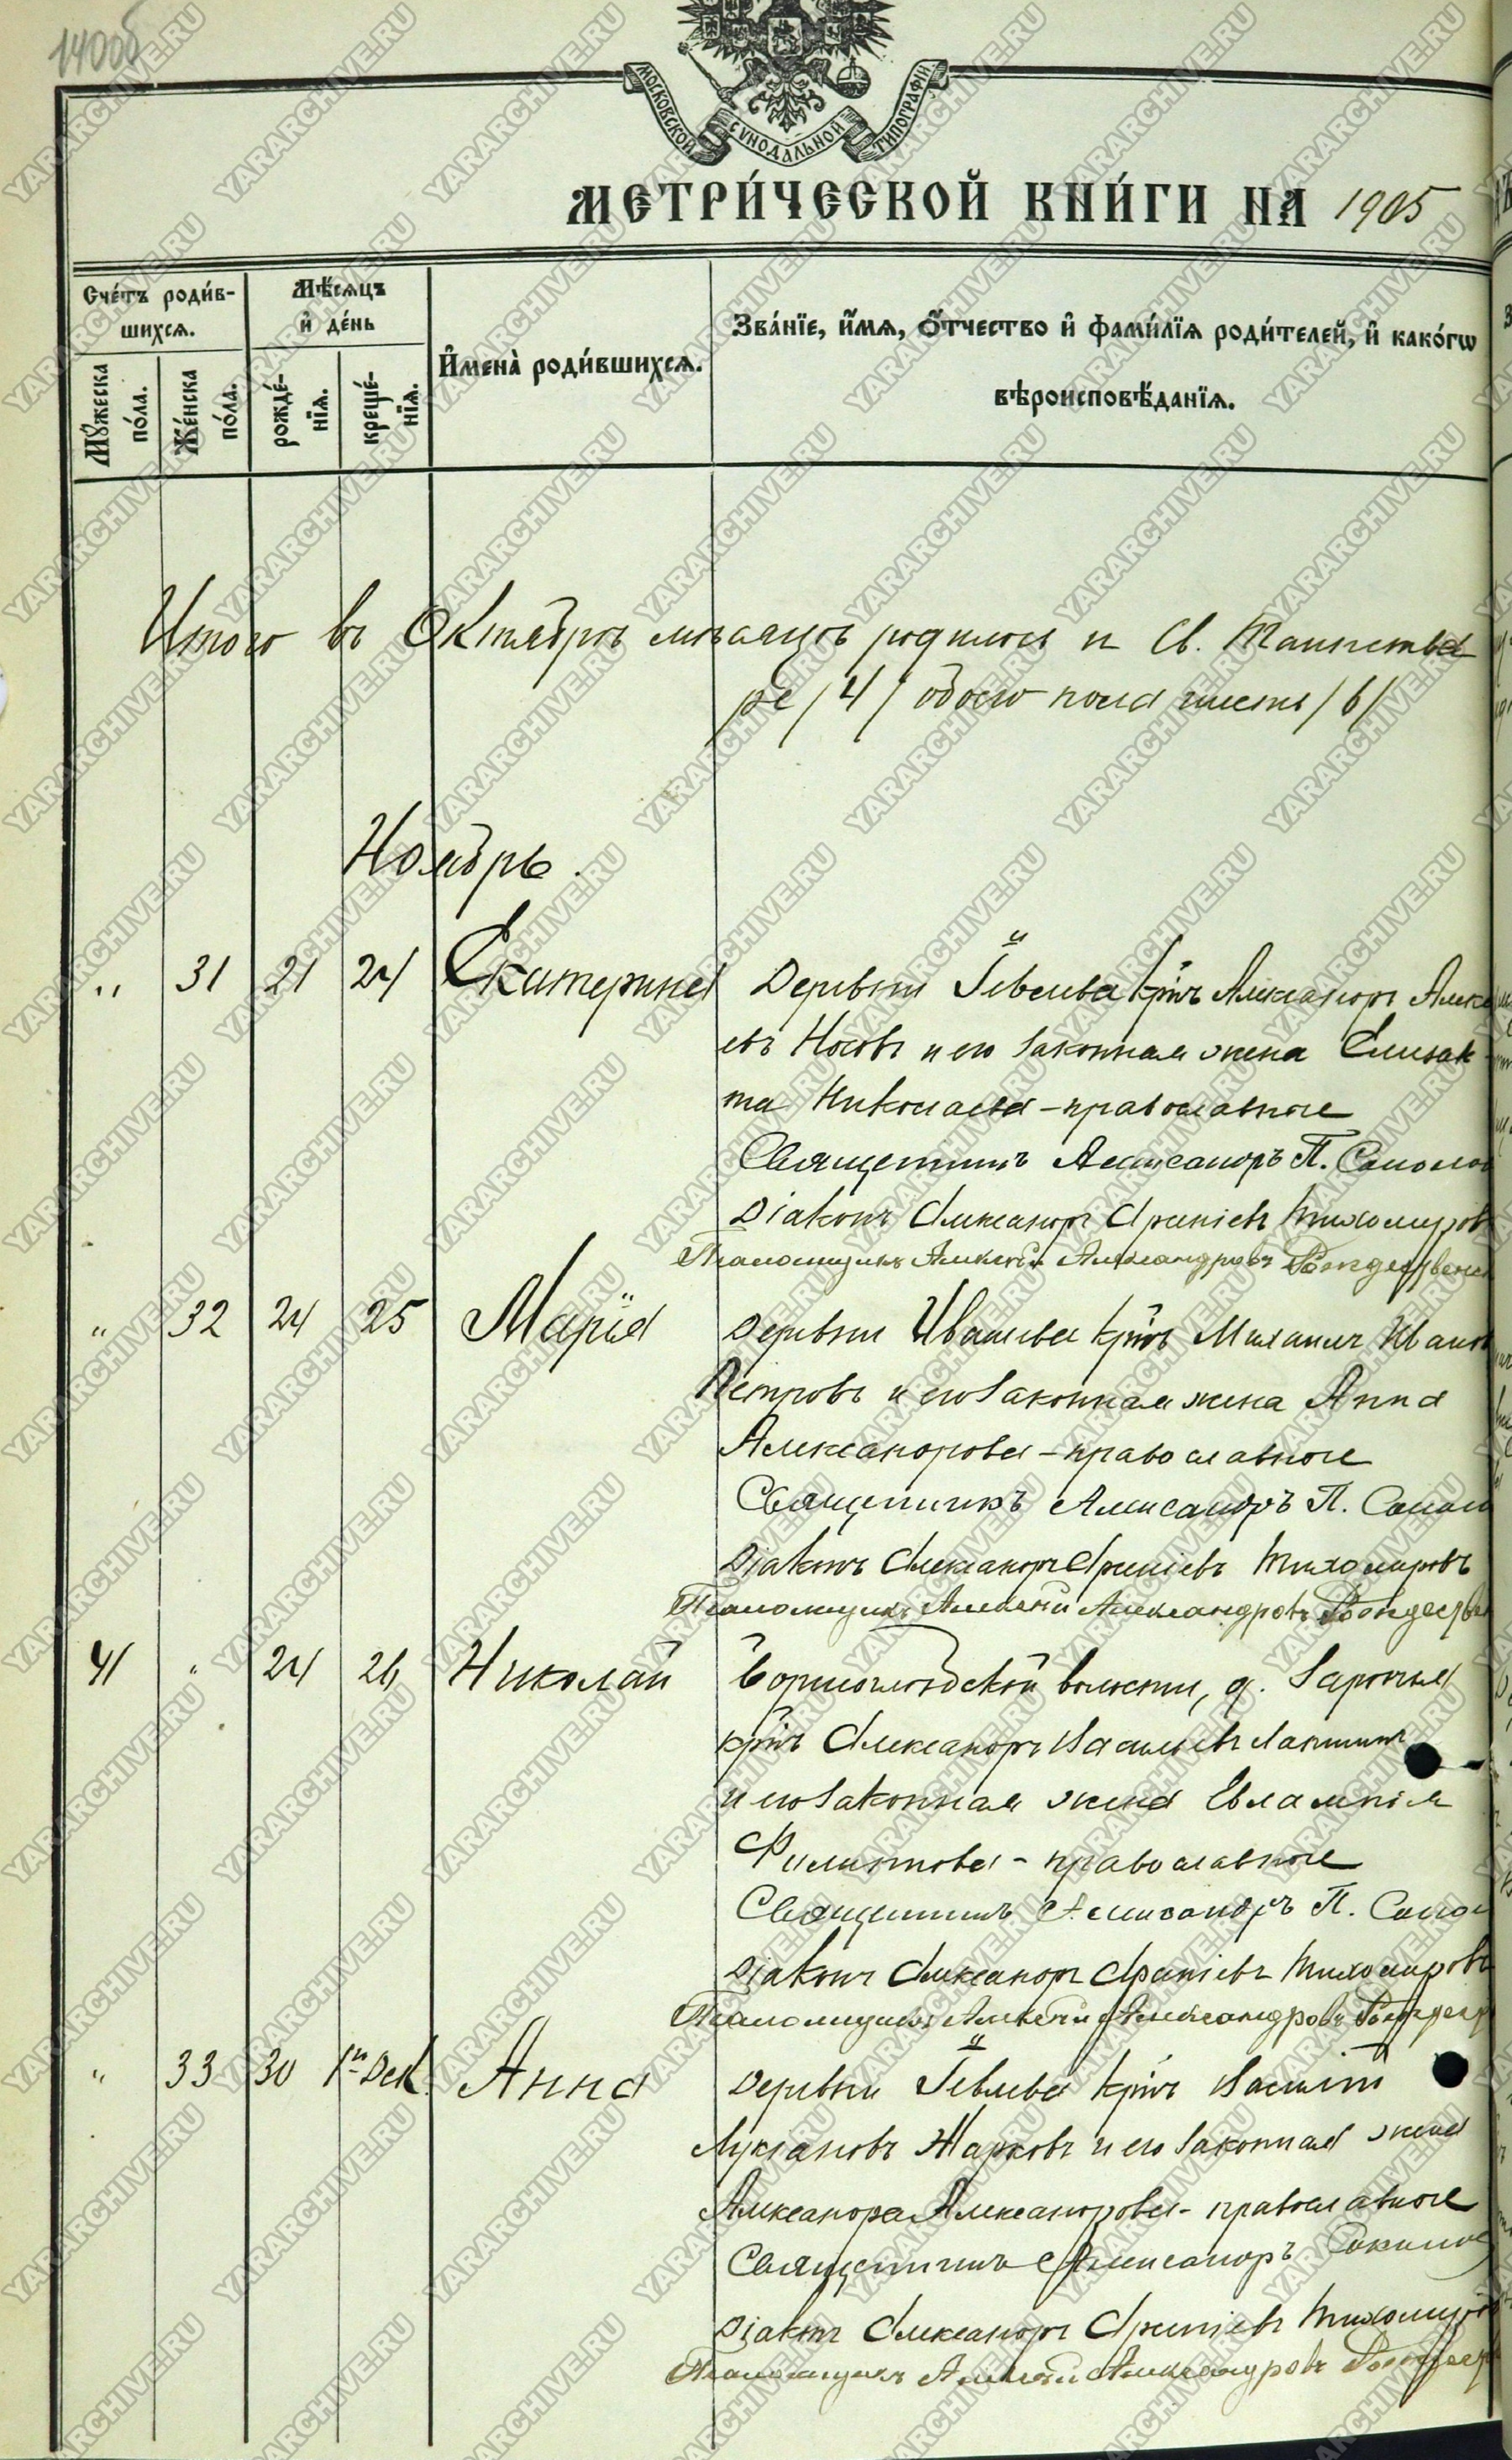 1400об
МОСКОВСКОЙ СѴНОДАЛЬНОЙ ТИПОГРАФІИ
МЕТРИ́ЧЕСКОЙ КНИ́ГИ НА 1905
Сче́тъ роди́вшихся.
Мѣ́сяцъ и҆ де́нь
И҆мена̀ роди́вшихся.
Зва́нїе, и҆́мя, ѻ҆́тчество и҆ фами́лїя роди́телей, и҆ како́гѡ
вѣроисповѣ́данїя.
Му́жеска по́ла.
Же́нска по́ла.
рожде́нїя.
креще́нїя.
Итого въ Октябрѣ мѣсяцѣ родилось и Св. Таинства
ре /4/ обоего пола шесть /6/
Ноябрь.
" 31 21 24 Екатерина Деревни Іевлева кр‑нъ Александръ Алексѣ
евъ Носовъ и его законная жена Елизаве
та Николаева - православные
Священникъ Александръ П. Соколов
Діаконъ Александръ Тихомиров
Псаломщикъ Алексѣй Александровъ Рождественс
" 32 24 25 Марія Деревни Ивашева кр‑нъ Михаилъ Иванов
Петровъ и его законная жена Анна
Александрова - православные
Священникъ Александръ П. Сокол
Діаконъ Александръ Тихомировъ
Псаломщикъ Алексѣй Александровъ Рождестве
41 " 24 26 Николай волости, д. Заручья
кр‑нъ Александръ Васильевъ Лапшинъ
и его законная жена Евлампія
Филиппова - православные
Священникъ Александръ П. Соко
Діаконъ Александръ Тихомировъ
Псаломщикъ Алексѣй Александровъ Рождеств
" 33 30 1го Дек. Анна Деревни Іевлева кр‑нъ Василій
Лукіановъ Жарковъ и его законная жена
Александра Александрова - православные
Священникъ Александръ Соколов
Діаконъ Александръ Тихомиро
Псаломщикъ Алексѣй Александровъ Рождеств
YARARCHIVE.RU